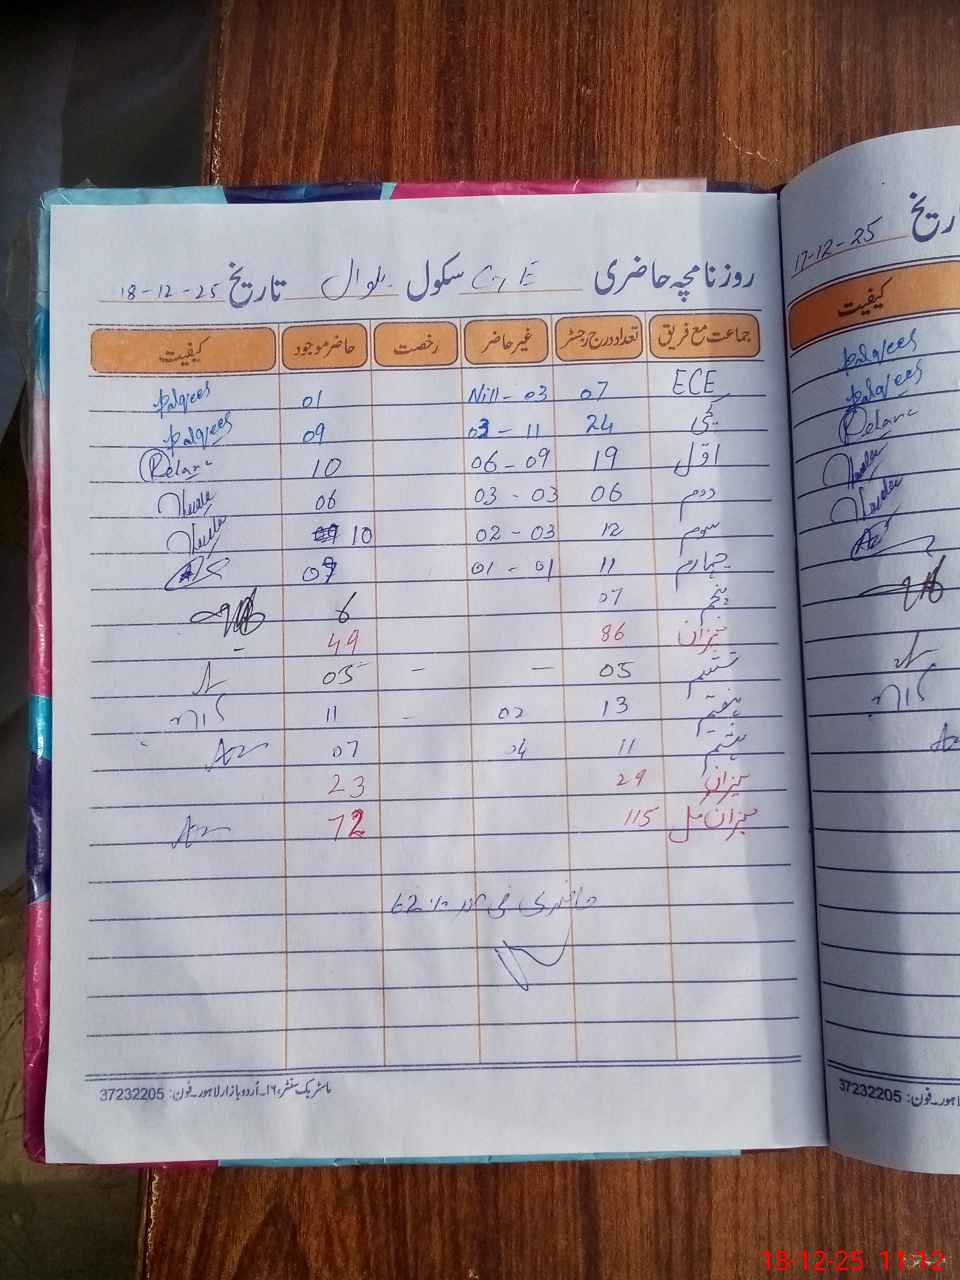 روزنامچہ حاضری سکول تاریخ 18-12-25
جماعت مع فریق تعداد درج رجسٹر غیر حاضر رخصت حاضر موجود کیفیت
ECE 07 Nill - 03 01 Balqees
کچی 24 03 - 11 09 Balqees
اول 19 06 - 09 10
دوم 06 03 - 03 06
سوم 12 02 - 03 10
چہارم 11 01 - 01 09
پنجم 07 6
میزان 86 49
ششم 05 - - 05
ہفتم 13 02 - 11
ہشتم 11 04 07
میزان 29 23
میزان کل 115 72
حاضری فی صد 62%
ماسٹر بک سنٹر، ۱۶۔اُردو بازار لاہور۔ فون: 37232205
تاریخ 17-12-25
کیفیت
Balqees
Balqees
لاہور۔ فون: 37232205
18-12-25 11:12